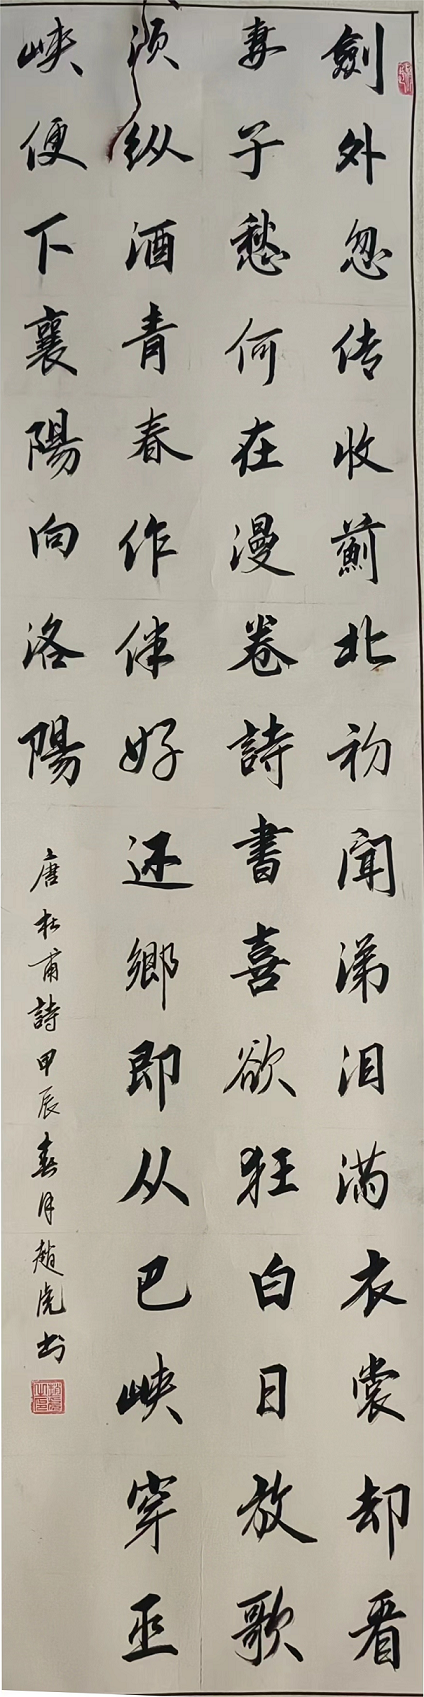 劍外忽传收薊北初闻涕泪满衣裳却看
妻子愁何在漫卷詩書喜欲狂白日放歌
须纵酒青春作伴好还鄉即从巴峡穿巫
峡便下襄陽向洛陽
唐杜甫詩甲辰春月趙虎书